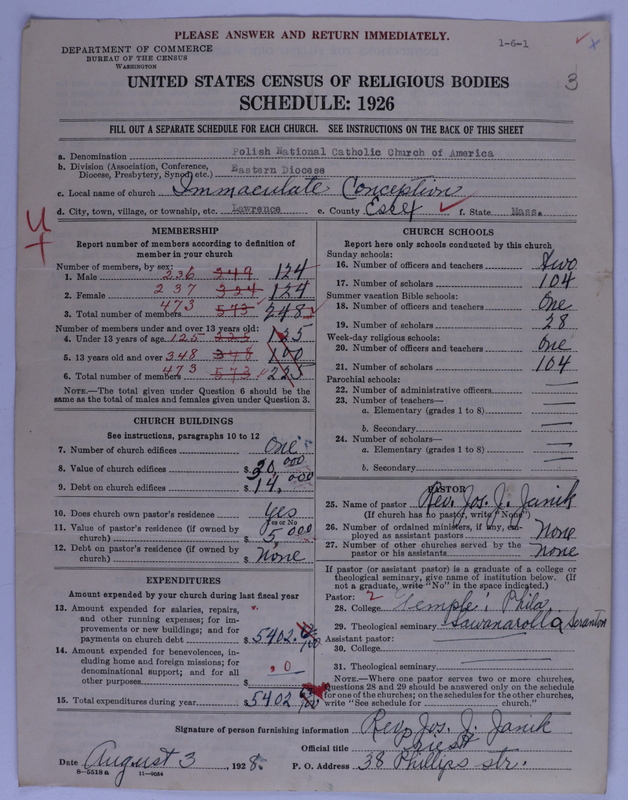 PLEASE ANSWER AND RETURN IMMEDIATELY.
1-6-1
DEPARTMENT OF COMMERCE
BUREAU OF THE CENSUS
WASHINGTON
UNITED STATES CENSUS OF RELIGIOUS BODIES
3
SCHEDULE: 1926
FILL OUT A SEPARATE SCHEDULE FOR EACH CHURCH. SEE INSTRUCTIONS ON THE BACK OF THIS SHEET
a. Denomination Polish National Catholic Church of America
b. Division (Association, Conference, Diocese, Presbytery, Synod, etc.) Eastern Diocese
c. Local name of church Immaculate Conception
d. City, town, village, or township, etc. Lawrence e. County Essex f. State Mass.
MEMBERSHIP
Report number of members according to definition of
member in your church
Number of members, by sex:
1. Male 236 249 124
2. Female 237 324 124
3. Total number of members 473 573 248
Number of members under and over 13 years old:
4. Under 13 years of age 125 225 125
5. 13 years old and over 348 348 100
6. Total number of members 473 573 225
NOTE.—The total given under Question 6 should be
same as the total of males and females given under Question 3.
CHURCH BUILDINGS
See instructions, paragraphs 10 to 12
7. Number of church edifices One
8. Value of church edifices $ 20,000
9. Debt on church edifices $ 14,000
10. Does church own pastor's residence? Yes
Yes or No
11. Value of pastor's residence (if owned by
church) $ 5,000
12. Debt on pastor's residence (if owned by
church) $ None
EXPENDITURES
Amount expended by your church during last fiscal year
13. Amount expended for salaries, repairs,
and other running expenses; for im-
provements or new buildings; and for
payments on church debt $ 5402.
14. Amount expended for benevolences, in-
cluding home and foreign missions; for
denominational support; and for all
other purposes $ 0
15. Total expenditures during year $ 5402
CHURCH SCHOOLS
Report here only schools conducted by this church
Sunday schools:
16. Number of officers and teachers Two
17. Number of scholars 104
Summer vacation Bible schools:
18. Number of officers and teachers One
19. Number of scholars 28
Week-day religious schools:
20. Number of officers and teachers One
21. Number of scholars 104
Parochial schools:
22. Number of administrative officers —
23. Number of teachers—
a. Elementary (grades 1 to 8) —
b. Secondary —
24. Number of scholars—
a. Elementary (grades 1 to 8) —
b. Secondary —
PASTOR
25. Name of pastor Rev. Jos. J. Janik
(If church has no pastor, write "None")
26. Number of ordained ministers, if any, em-
ployed as assistant pastors None
27. Number of other churches served by the
pastor or his assistants None
If pastor (or assistant pastor) is a graduate of a college or
theological seminary, give name of institution below. (If
not a graduate, write "No" in the space indicated.)
Pastor: 2
28. College Temple; Phila
29. Theological seminary Sawanarolla Scranton
Assistant pastor:
30. College
31. Theological seminary
NOTE.—Where one pastor serves two or more churches,
Questions 28 and 29 should be answered only on the schedule
for one of the churches; on the schedules for the other churches,
write "See schedule for church."
Signature of person furnishing information Rev. Jos. J. Janik
Official title Priest
Date August 3, 1928. P. O. Address 38 Phillips str.
8—5518a 11—9054